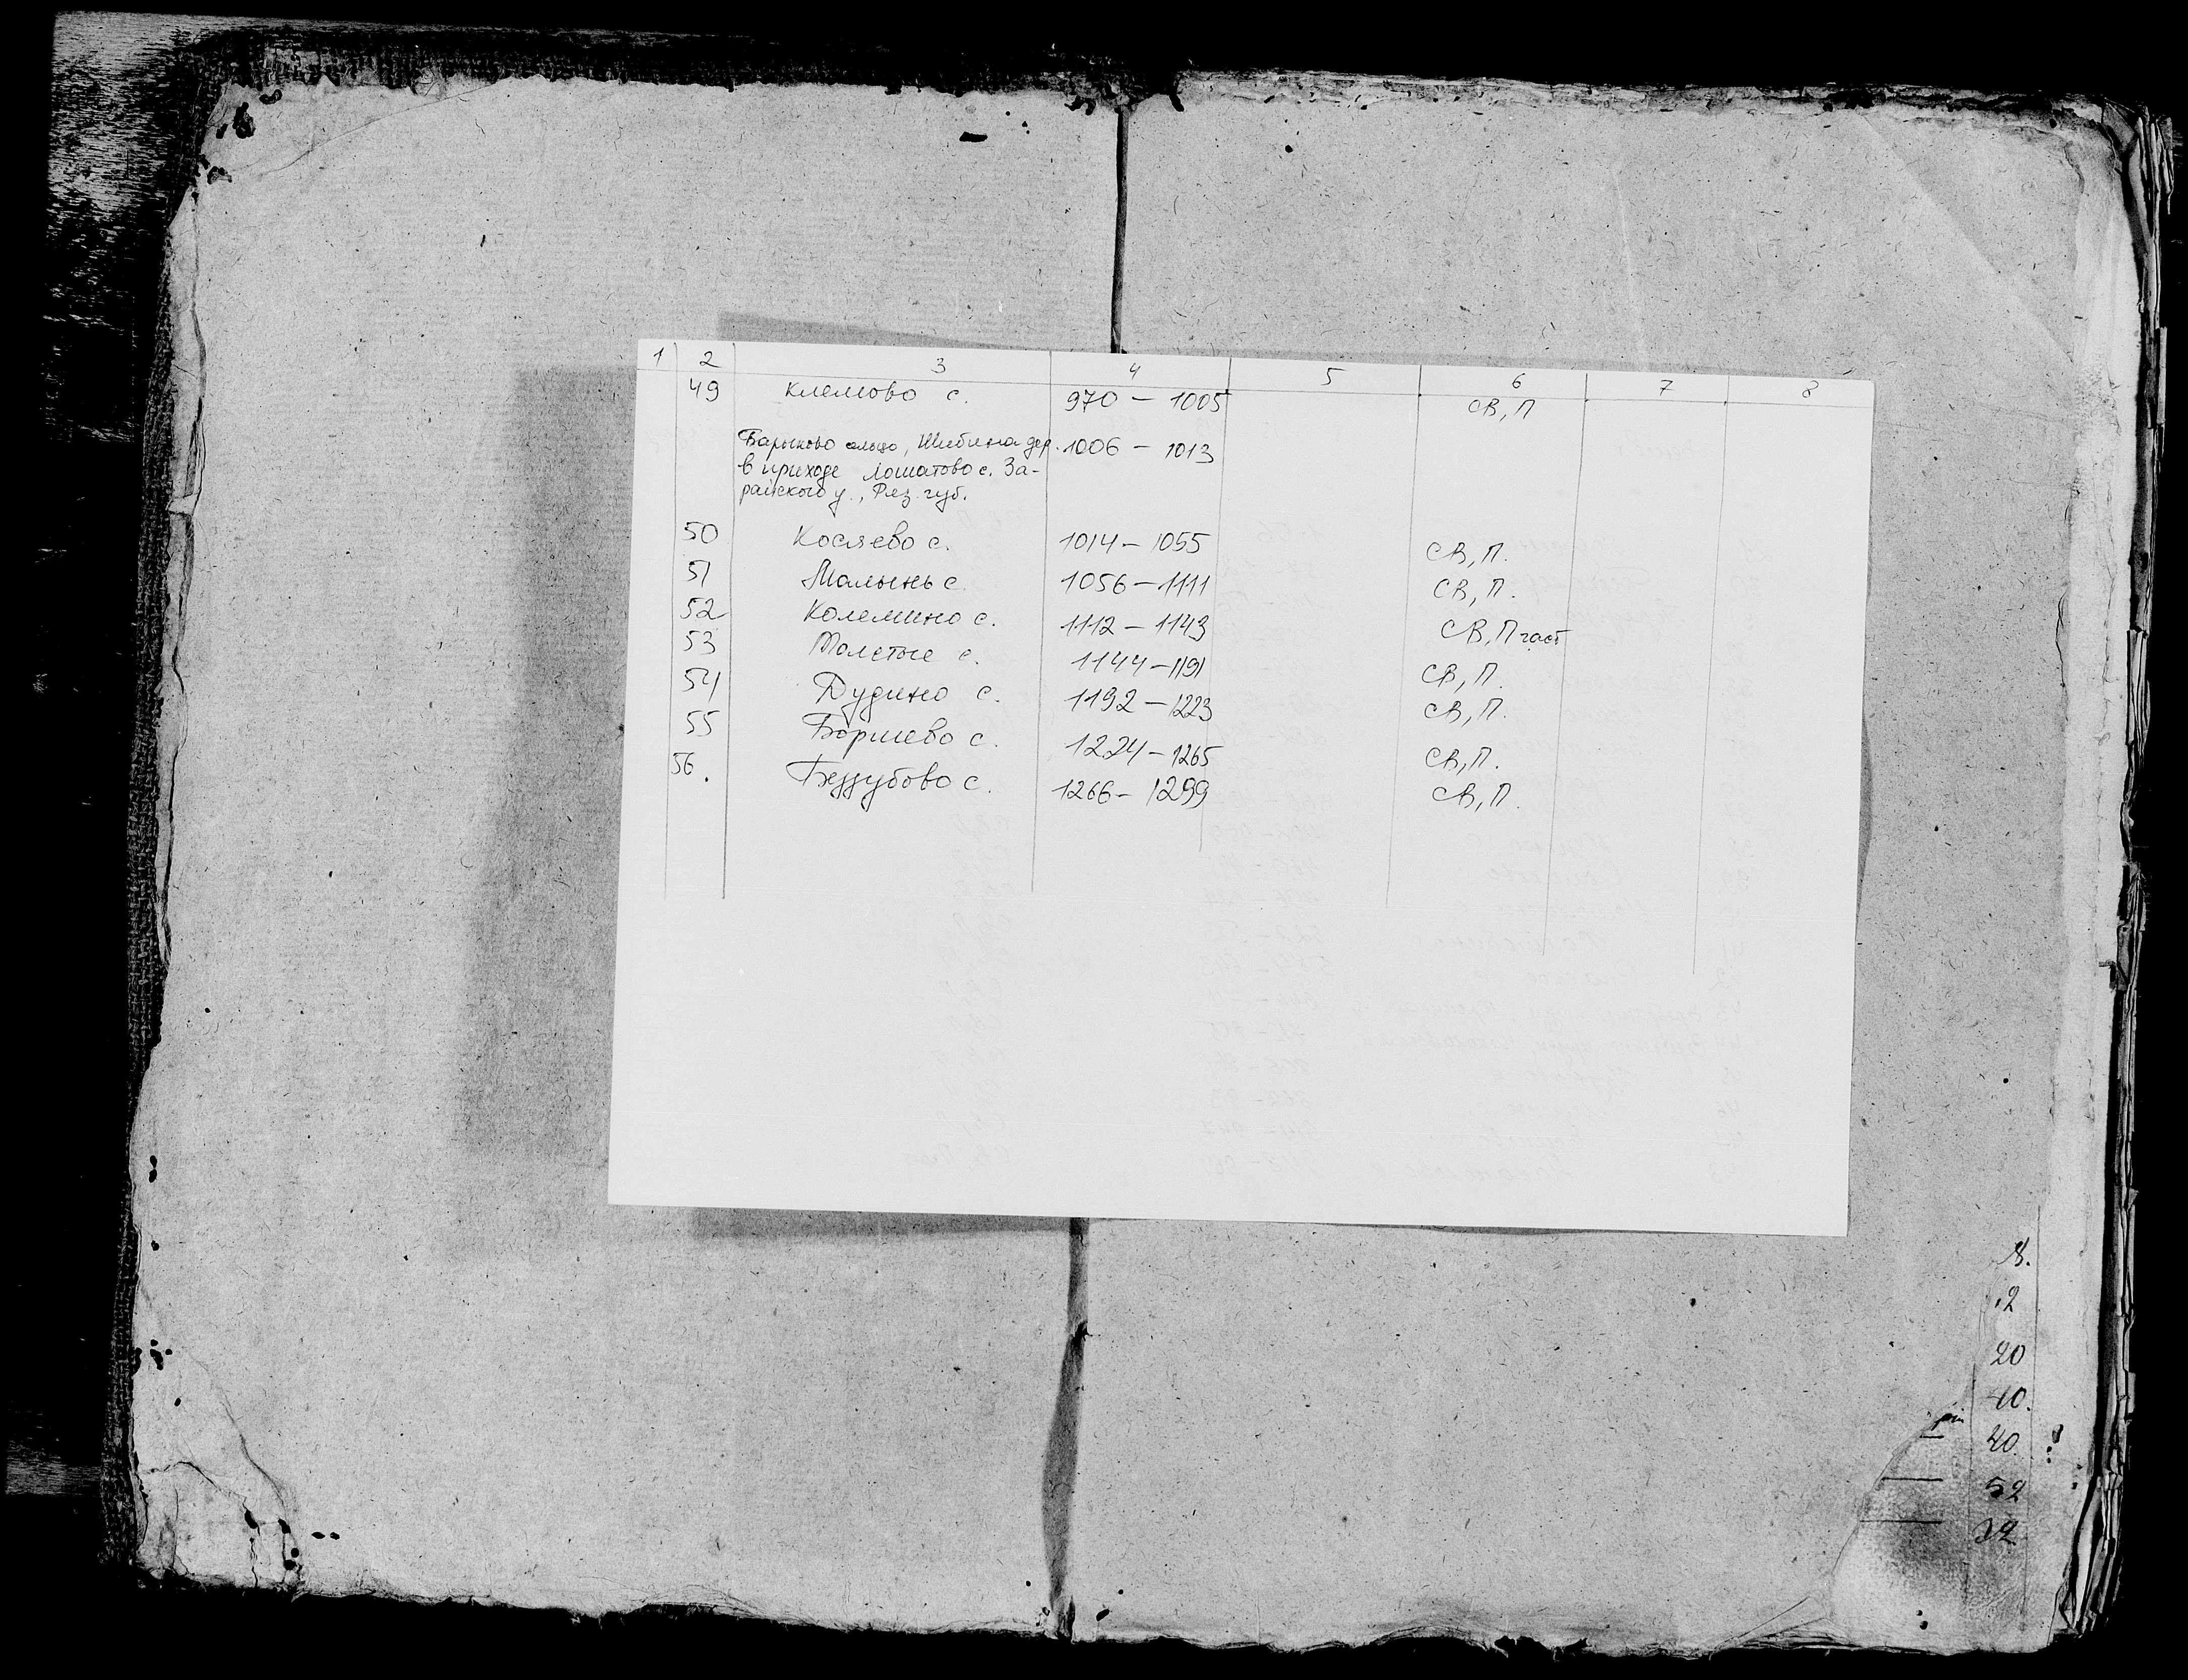 1 2 3 4 5 6 7 8
49 Клемово с. 970 – 1005 СВ, П
Барыково сельцо, Шибина дер. 1006 – 1013
в приходе Ломатово с. За-
райского у., Ряз. губ.
50 Косяево с. 1014 – 1055 СВ, П.
51 Малынь с. 1056 – 1111 СВ, П.
52 Колемино с. 1112 – 1143 СВ, П част
53 Толстые с. 1144 – 1191 СВ, П.
54 Дудино с. 1192 – 1223 СВ, П.
55 Боршево с. 1224 – 1265 СВ, П.
56. Беззубово с. 1266 – 1299 СВ, П.
8.
2
20
10.
40
52
32